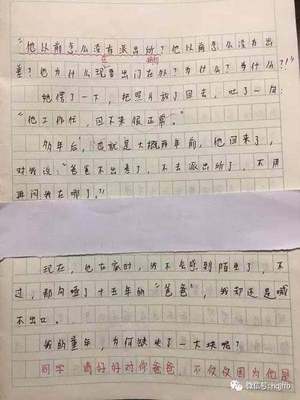 "他以前怎么没有派出所?他以前怎么没有出
差?他为什么现要出门在外?为什么?为什么?!"
她愣了一下,把照片放了回去,吐了一句:
"他工作忙,回不来很正常。"
多年后,也就是大概两年前,他回来了,
对我说:"爸爸不出差了,不去派出所了,不用
再问我在哪了。"
现在,他在家时,我不会感到陌生了,不
过,那句哑了十五年的"爸爸",我却还是喊
不出口。
我的童年,为何缺失了一大块呢?
同学 请好好对你爸爸 不仅仅因为他是
微信号:nqjfro